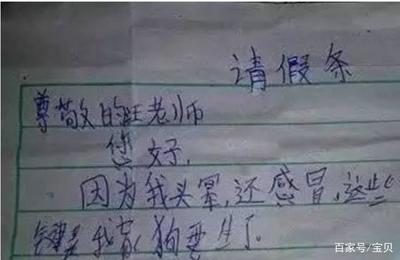 请假条
尊敬的旺老师
您好,
因为我头晕,还感冒,这些
关键是我家狗要生了.
百家号/宝贝